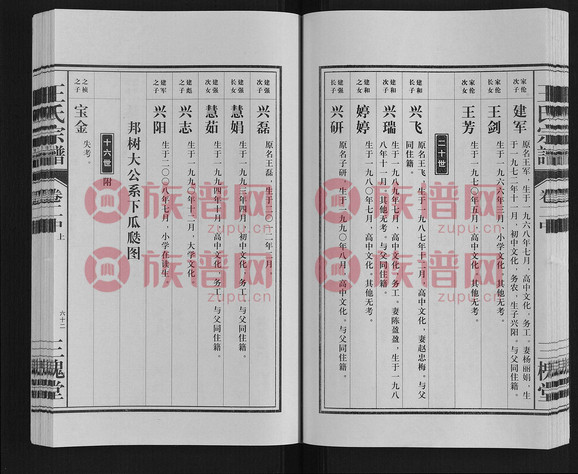 家伦
次子
建军
原名王军，生于一九六八年七月，高中文化，务工。妻杨丽娟，生
于一九七二年十一月，初中文化，务农，生子兴阳。与父同住籍。
家伦
之子
王剑
生于一九六六年三月，小学文化，务工。与父同住籍。
家伦
次女
王芳
生于一九七〇年五月，高中文化，其他无考。
二十世
建和
之子
兴飞
原名王飞，生于一九八七年十二月，高中文化。妻赵忠梅。与父
同住籍。
建和
次子
兴瑞
生于一九八九年七月，高中文化，务工。妻陈盈盈，生于一九八
八年十一月，其他无考。与父同住籍。
建和
之女
婷婷
生于一九八〇年七月，高中文化，其他无考。
建强
长子
兴研
原名子研，生于一九九〇年八月，高中文化，务工。与父同住籍。
建强
次子
兴磊
原名王磊，生于二〇一二年二月。
建强
长女
慧娟
生于一九九三年四月，初中文化，务工。与父同住籍。
建强
次女
慧茹
生于一九九四年四月，高中文化，务工。与父同住籍。
建彪
之子
兴志
生于一九九〇年十二月，大学文化
建军
之子
兴阳
生于二〇〇八年七月，小学在读生
邦树大公系下瓜瓞图
十六世 附
之桢
之子
宝金
失考。
王氏宗谱
卷二中 上
六十二
三槐堂
王氏宗谱
卷二中
槐堂
族谱网
zupu.cn
族谱网
zupu.cn
族谱网
zupu.cn
族谱网
zupu.cn